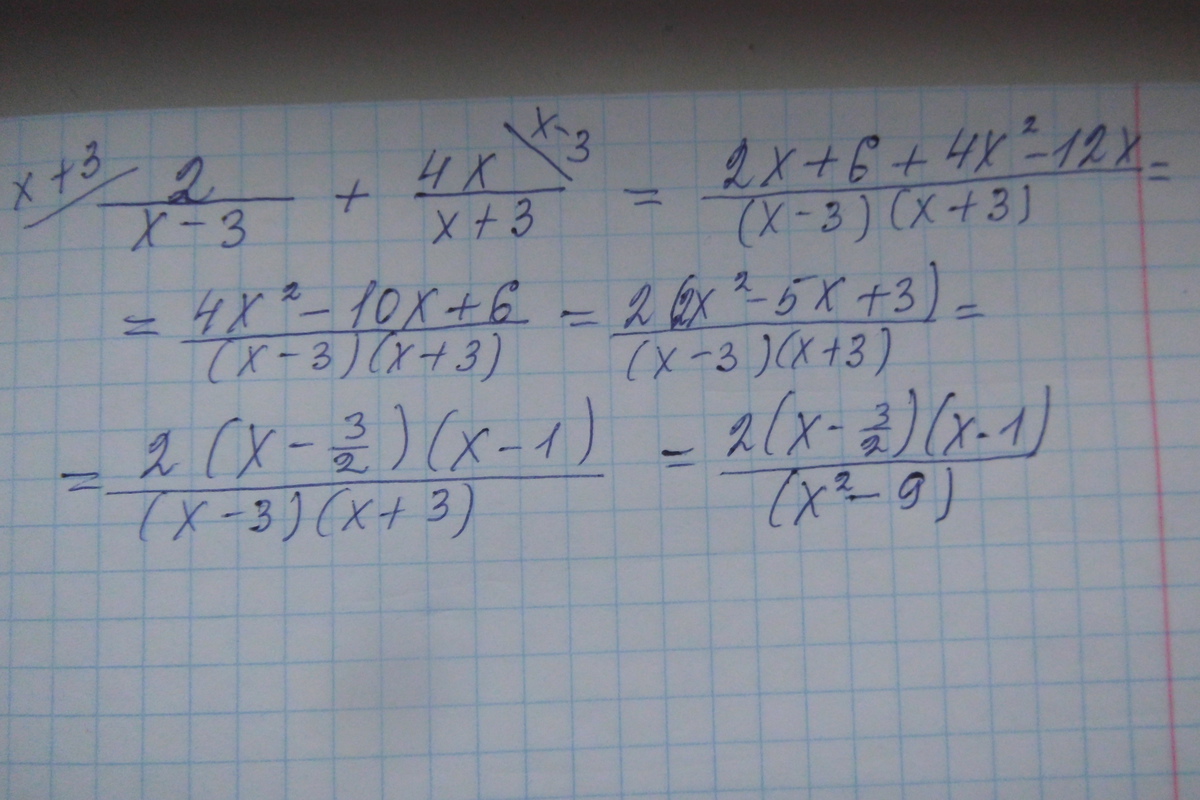 x+3/ 2/(x-3) + 4x/(x+3) \x-3 = (2x+6+4x²-12x)/((x-3)(x+3)) =
= (4x²-10x+6)/((x-3)(x+3)) = 2(2x²-5x+3)/((x-3)(x+3)) =
= 2(x-3/2)(x-1)/((x-3)(x+3)) = 2(x-3/2)(x-1)/(x²-9)